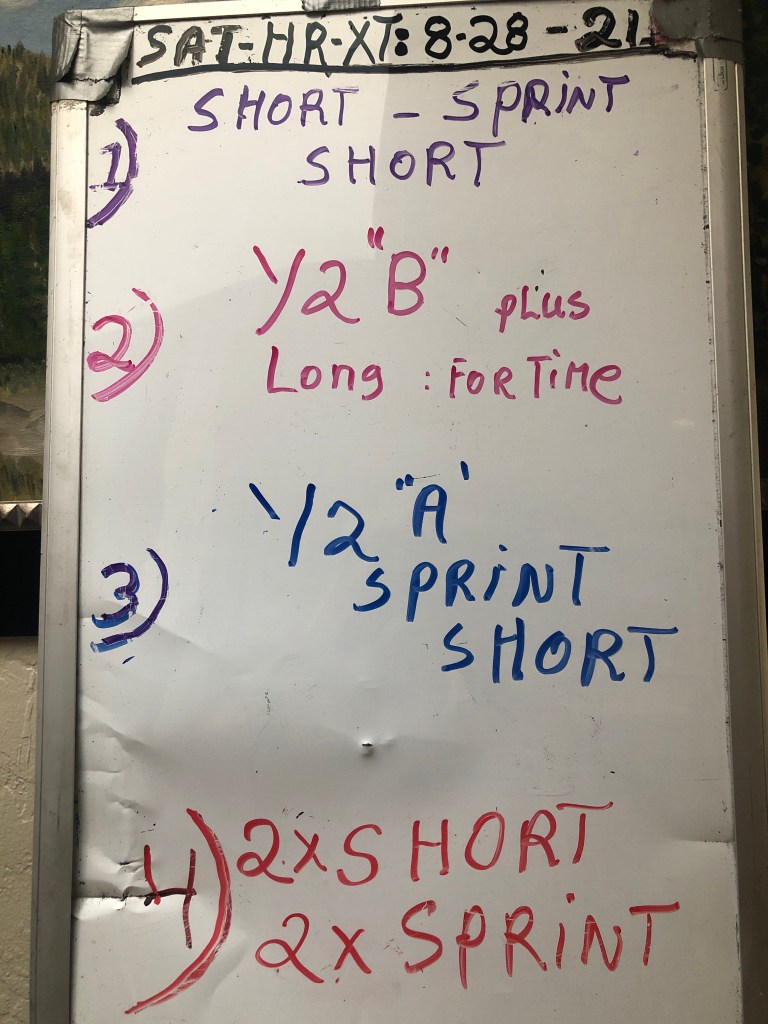 SAT-HR-XT: 8-28-21
SHORT - SPRINT
1) SHORT
1/2 "B" pLus
2) Long : FOR TiMe
1/2 "A'
3) SPRiNT
SHORT
4) 2xSHORT
2x SPRiNT